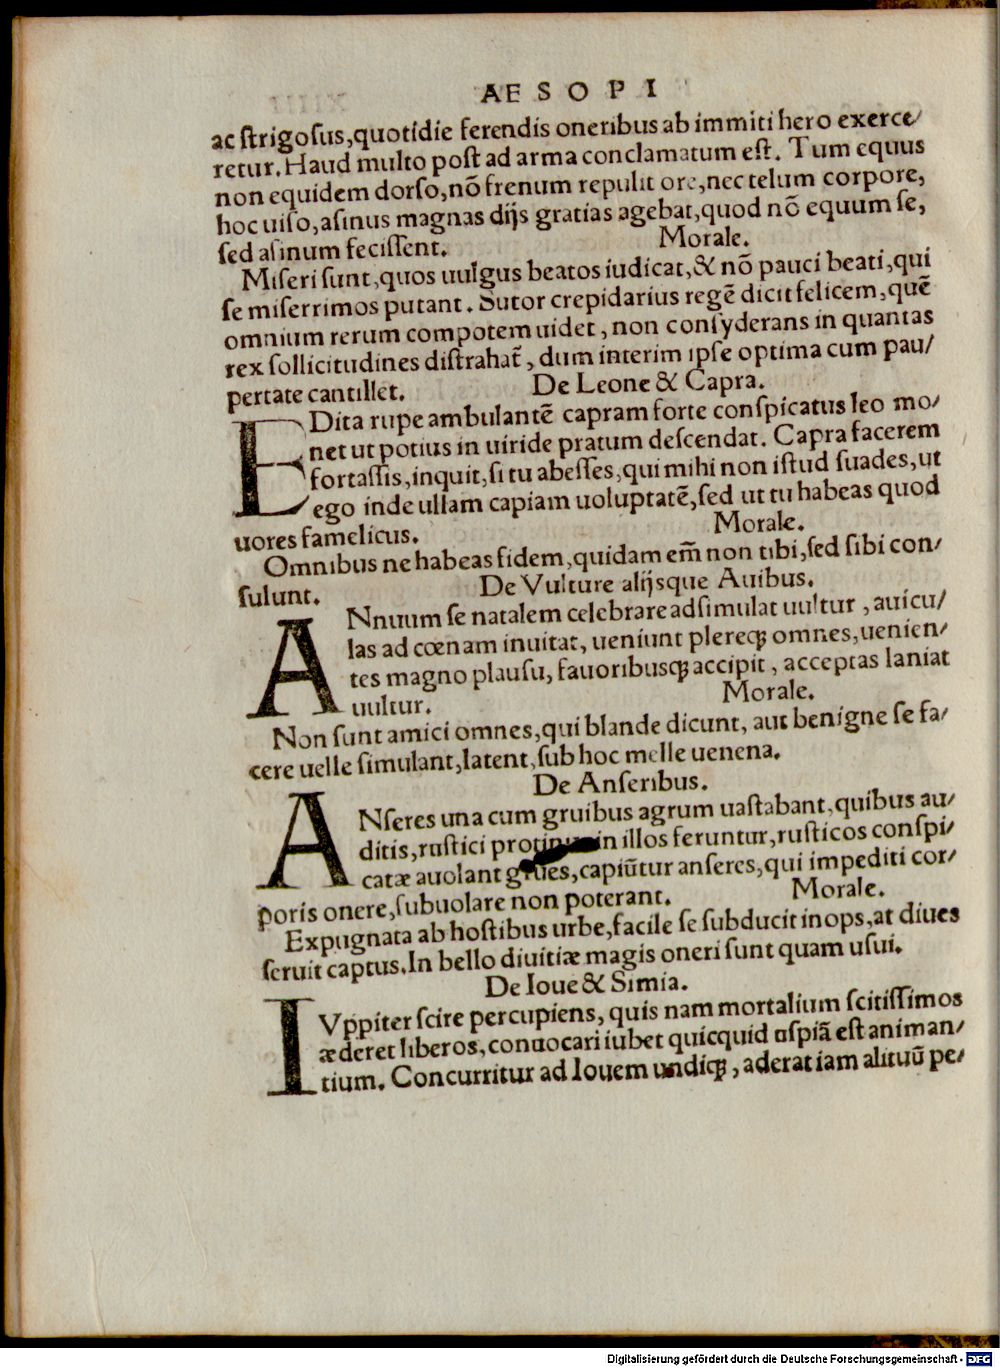 AESOPI
ac ſtrigoſus,quotidie ferendis oneribus ab immiti hero exerce/
retur.Haud multo poſt ad arma conclamatum eſt. Tum equus
non equidem dorſo,nõ frenum repulit ore,nec telum corpore,
hoc uiſo,aſinus magnas dijs gratias agebat,quod nõ equum ſe,
ſed aſinum feciſſent. Morale.
Miſeri ſunt,quos uulgus beatos iudicat,& nõ pauci beati,qui
ſe miſerrimos putant. Sutor crepidarius regẽ dicit felicem,quẽ
omnium rerum compotem uidet, non conſyderans in quantas
rex ſollicitudines diſtrahat̃, dum interim ipſe optima cum pau/
pertate cantillet. De Leone & Capra.
EDita rupe ambulantẽ capram forte conſpicatus leo mo/
net ut potius in uiride pratum deſcendat. Capra facerem
fortaſſis,inquit,ſi tu abeſſes,qui mihi non iſtud ſuades,ut
ego inde ullam capiam uoluptatẽ,ſed ut tu habeas quod
uores famelicus. Morale.
Omnibus ne habeas fidem,quidam em̃ non tibi,ſed ſibi con/
ſulunt. De Vulture alijsque Auibus.
ANnuum ſe natalem celebrare adſimulat uultur, auicu/
las ad cœnam inuitat, ueniunt plereqꝫ omnes,uenien/
tes magno plauſu, fauoribusqꝫ accipit, acceptas laniat
uultur. Morale.
Non ſunt amici omnes,qui blande dicunt, aut benigne ſe fa/
cere uelle ſimulant,latent,ſub hoc melle uenena.
De Anſeribus.
ANſeres una cum gruibus agrum uaſtabant,quibus au/
ditis,ruſtici protinus in illos feruntur,ruſticos conſpi/
catæ auolant grues,capiũtur anſeres,qui impediti cor/
poris onere,ſubuolare non poterant. Morale.
Expugnata ab hoſtibus urbe,facile ſe ſubducit inops,at diues
ſeruit captus.In bello diuitiæ magis oneri ſunt quam uſui.
De Ioue & Simia.
IVppiter ſcire percupiens, quis nam mortalium ſcitiſſimos
æderet liberos,conuocari iubet quicquid uſpiã eſt animan/
tium. Concurritur ad Iouem undiqꝫ, aderat iam alituũ pe/
Digitalisierung gefördert durch die Deutsche Forschungsgemeinschaft - DFG